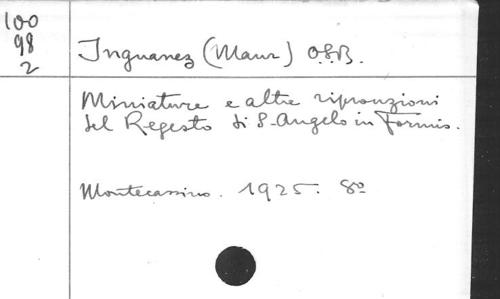 100
98
2
Inguanez (Maur) O.S.B.
Miniature e altre riproduzioni
del Regesto di S. Angelo in Formis.
Montecassino. 1925. 8º